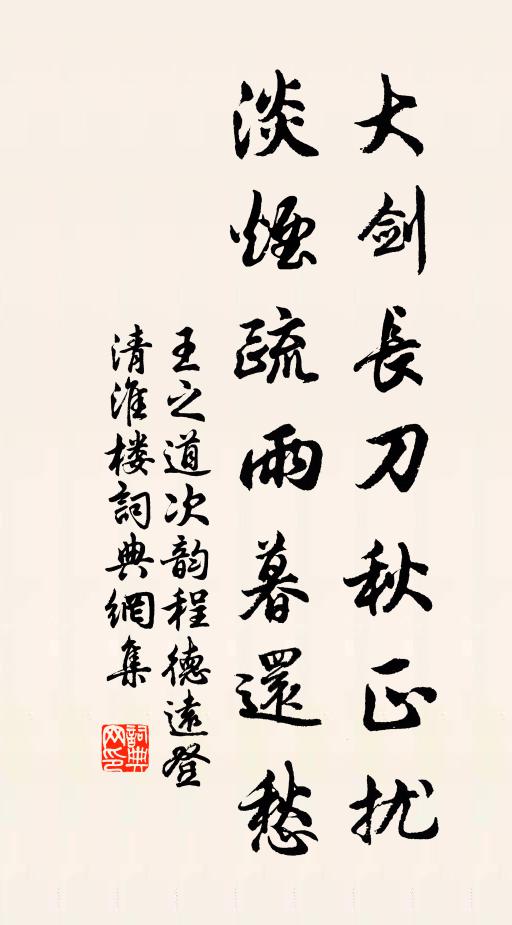 大剑長刀秋正扰
淡煙疏雨暮還愁
王之道次韵程德遠登
清淮楼詞典網集
詞典网印